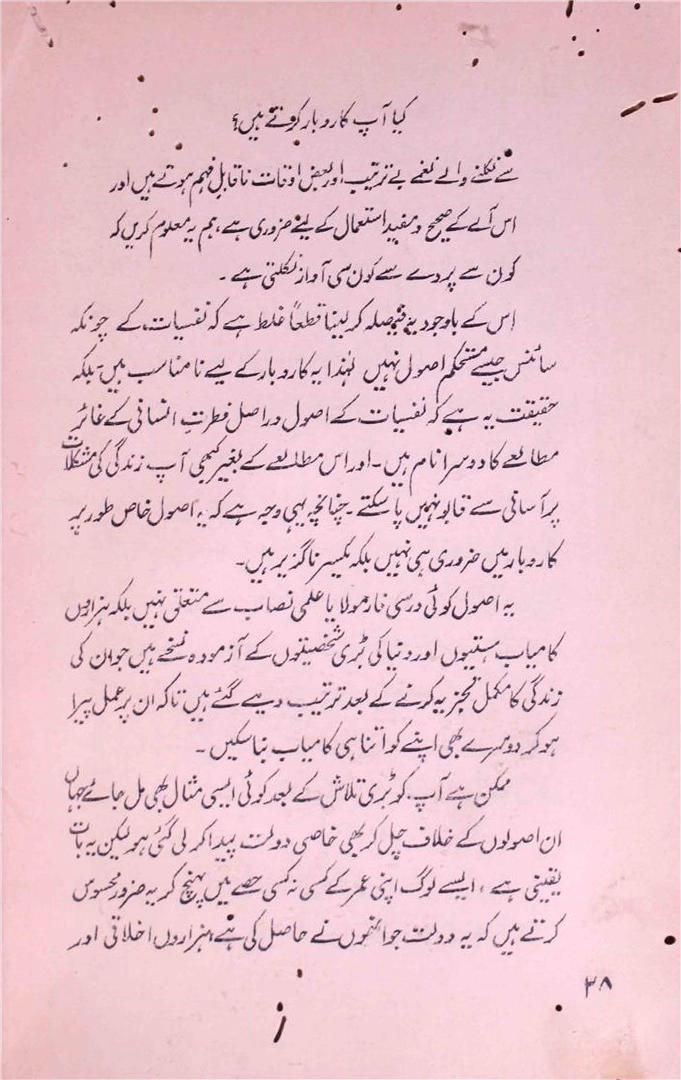 کیا آپ کاروبار کرتے ہیں؟
سے نکلنے والے نغمے بے ترتیب اور بعض اوقات ناقابلِ فہم ہوتے ہیں اور
اس آلے کے صحیح و مفید استعمال کے لیے ضروری ہے، ہم یہ معلوم کریں کہ
کون سے پردے سے کون سی آواز نکلتی ہے ۔
اس کے باوجود یہ فیصلہ کر لینا قطعاً غلط ہے کہ نفسیات، کے چونکہ
سائنس جیسے مستحکم اصول نہیں لہٰذا یہ کاروبار کے لیے نامناسب ہیں۔ بلکہ
حقیقت یہ ہے کہ نفسیات کے اصول دراصل فطرتِ انسانی کے غائر
مطالعے کا دوسرا نام ہیں ۔ اور اس مطالعے کے بغیر کبھی آپ زندگی کی مشکلات
پر آسانی سے قابو نہیں پا سکتے ۔ چنانچہ یہی وجہ ہے کہ یہ اصول خاص طور پر
کاروبار میں ضروری ہی نہیں بلکہ یکسر ناگزیر ہیں۔
یہ اصول کوئی درسی فارمولا یا علمی نصاب سے متعلق نہیں بلکہ ہزاروں
کامیاب ہستیوں اور دنیا کی بڑی شخصیتوں کے آزمودہ نسخے ہیں جو ان کی
زندگی کا مکمل تجزیہ کرنے کے بعد ترتیب دیے گئے ہیں تاکہ ان پر عمل پیرا
ہو کر دوسرے بھی اپنے کو اتنا ہی کامیاب بنا سکیں ۔
ممکن ہے آپ کو بڑی تلاش کے بعد کوئی ایسی مثال بھی مل جائے جہاں
ان اصولوں کے خلاف چل کر بھی خاصی دولت پیدا کر لی گئی ہو لیکن یہ بات
یقینی ہے، ایسے لوگ اپنی عمر کے کسی نہ کسی حصے میں پہنچ کر یہ ضرور محسوس
کرتے ہیں کہ یہ دولت جو انھوں نے حاصل کی ہے، ہزاروں اخلاقی اور
۳۸